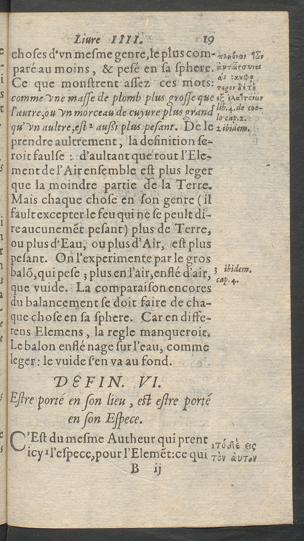 Liure IIII. 19
choses d'vn mesme genre, le plus com-
paré au moins, & pesé en sa sphere.
Ce que monstrent assez ces mots:
comme vne masse de plomb plus grosse que
l'autre, ou vn morceau de cuyure plus grand
qu'vn aultre, est 2 aussi plus pesant. De le
prendre aultrement, la definition se-
roit faulse: d'aultant que tout l'Ele-
ment de l'Air ensemble est plus leger
que la moindre partie de la Terre.
Mais chaque chose en son genre (il
fault excepter le feu qui ne se peult di-
re aucunemēt pesant) plus de Terre,
ou plus d'Eau, ou plus d'Air, est plus
pesant. On l'experimente par le gros
balō, qui pese 3 plus en l'air, enflé d'air,
que vuide. La comparaison encores
du balancement se doit faire de cha-
que chose en sa sphere. Car en diffe-
rens Elemens, la regle manqueroit.
Le balon enflé nage sur l'eau, comme
leger: le vuide s'en va au fond.
lib. 4. de coe-
lo cap. 2.
2 ibidem.
3 ibidem.
cap. 4.
DEFIN. VI.
Estre porté en son lieu, est estre porté
en son Espece.
C'Est du mesme Autheur qui prent
icy 1 l'espece, pour l'Elemēt: ce qui
εἰς
τὸν αὐτοῦ
B ij